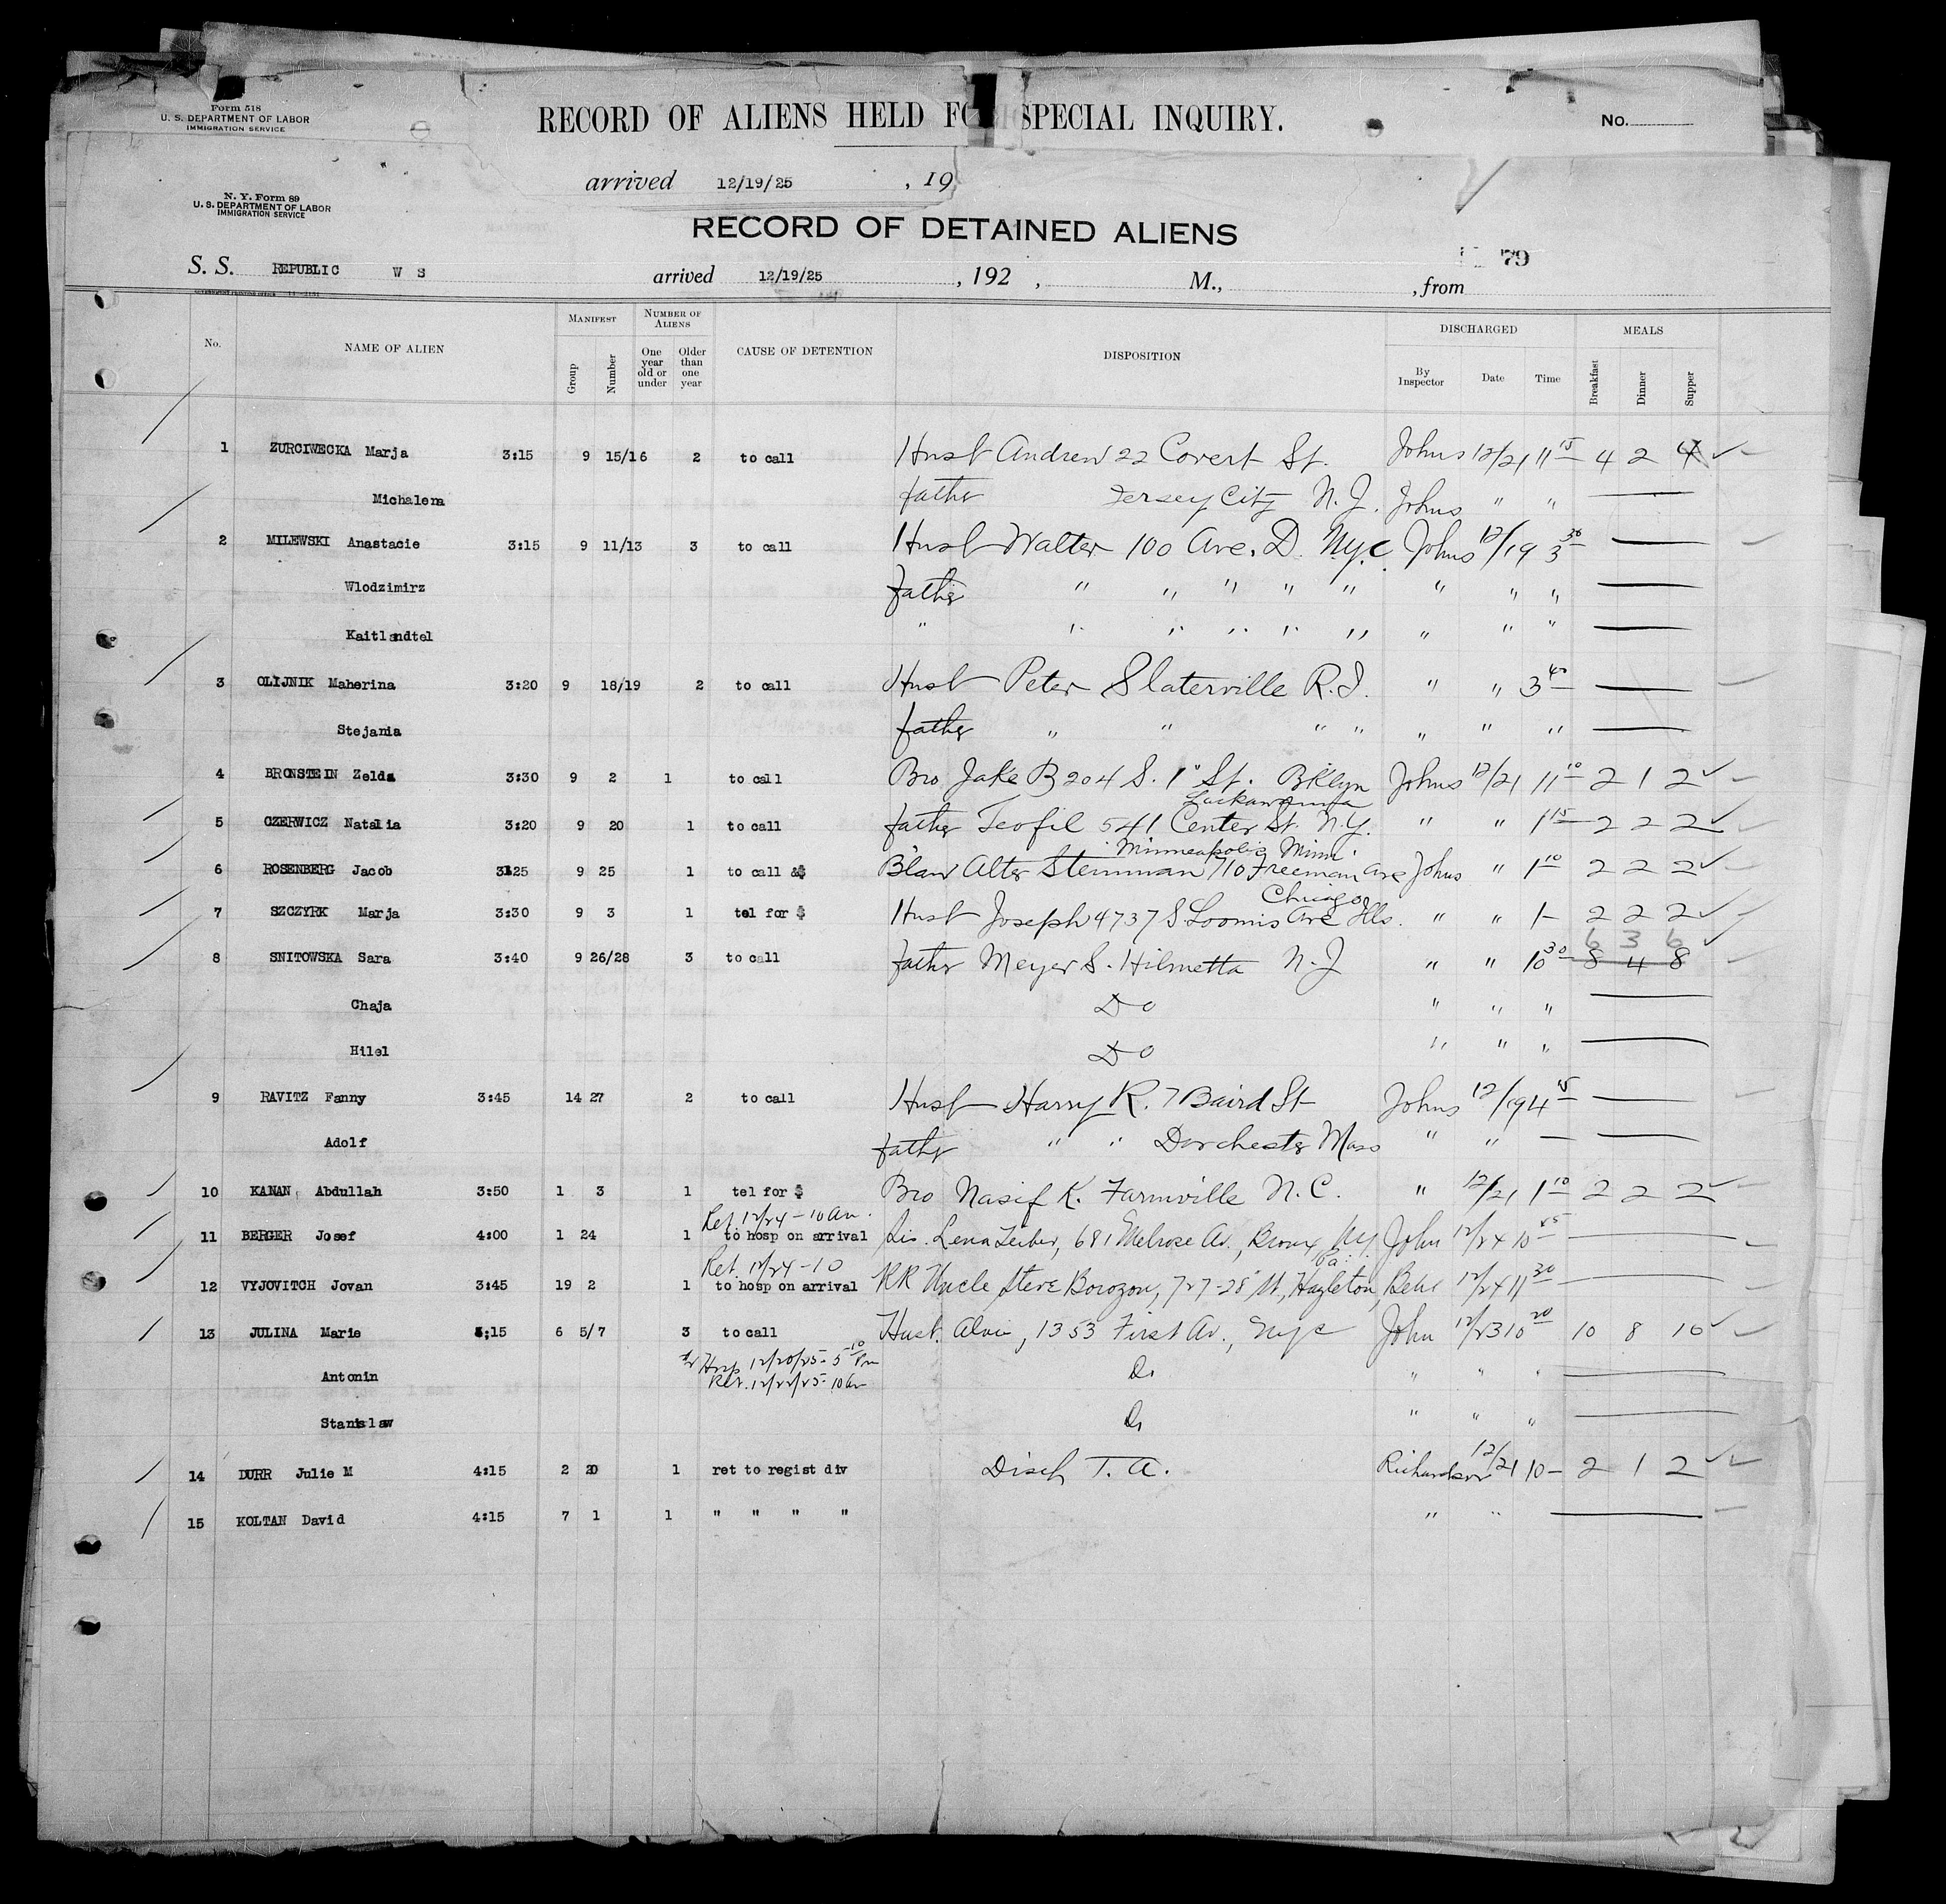 Form 518
U. S. DEPARTMENT OF LABOR
IMMIGRATION SERVICE
RECORD OF ALIENS HELD FO SPECIAL INQUIRY.
No.
arrived 12/19/25 , 19
N. Y. Form 89
U. S. DEPARTMENT OF LABOR
IMMIGRATION SERVICE
RECORD OF DETAINED ALIENS
79
S. S. REPUBLIC W S arrived 12/19/25 , 192 , M., , from
No. NAME OF ALIEN MANIFEST Group Number NUMBER OF ALIENS One year old or under Older than one year CAUSE OF DETENTION DISPOSITION DISCHARGED By Inspector Date Time MEALS Breakfast Dinner Supper
1 ZURCIWECKA Marja 3:15 9 15/16 2 to call Husb Andrew 22 Covert St. Johns 12/21 11 15 4 2 4
Michalena father Jersey City N. J. Johns " "
2 MILEWSKI Anastacie 3:15 9 11/13 3 to call Husb Walter 100 Ave. D. Nyc Johns 12/19 3 30
Wlodzimirz father " " " " " " " "
Kaitlandtel " " " " " " " " "
3 OLIJNIK Maherina 3:20 9 18/19 2 to call Husb Peter Slaterville R.I. " " 3 40
Stejania father " " " " " " "
4 BRONSTEIN Zelda 3:30 9 2 1 to call Bro Jake B 204 S. 1" St. Bklyn Johns 12/21 11 10 2 1 2
Lackawanna
5 CZERWICZ Natalia 3:20 9 20 1 to call father Teofil 541 Center St. N.Y. " " 1 15 2 2 2
Minneapolis Minn.
6 ROSENBERG Jacob 3:25 9 25 1 to call &$ Blaw Alter Steinman 710 Freeman Ave Johns " 1 10 2 2 2
Chicago
7 SZCZYRK Marja 3:30 9 3 1 tel for $ Husb Joseph 4737 S Loomis Ave Ills. " " 1- 2 2 2
6 3 6
8 SNITOWSKA Sara 3:40 9 26/28 3 to call father Meyer S. Hilmetta N. J " " 10 30 8 4 8
Chaja Do " " "
Hilel Do " " "
9 RAVITZ Fanny 3:45 14 27 2 to call Husb Harry R. 7 Baird St Johns 12/19 4 15
Adolf father " " Dorchester Mass " "
10 KANAN Abdullah 3:50 1 3 1 tel for $ Bro Nasif K. Farmville N. C. " 12/21 1 10 2 2 2
Ret. 12/24 - 10 am.
11 BERGER Josef 4:00 1 24 1 to hosp on arrival Sis. Lena Leiber, 681 Melrose Av., Bronx, Ny John 12/24 10 45
Ret. 12/24 - 10
Pa.
12 VYJOVITCH Jovan 3:45 19 2 1 to hosp on arrival RR Uncle Steve Borozon, 727-28" St, Hazleton, 12/24 11 30
13 JULINA Marie 5:15 6 5/7 3 to call Husb. Alvin, 1353 First Av., Nyc John 12/23 10 20 10 8 10
Antonin Hosp 12/20/25 - 5 10 Pm Do " " "
Ret. 12/22/25 - 10 am
Stanislaw Do " " "
14 DURR Julie M 4:15 2 20 1 ret to regist div Disch T. A. Richardson 12/21 10- 2 1 2
15 KOLTAN David 4:15 7 1 1 " " " " " "